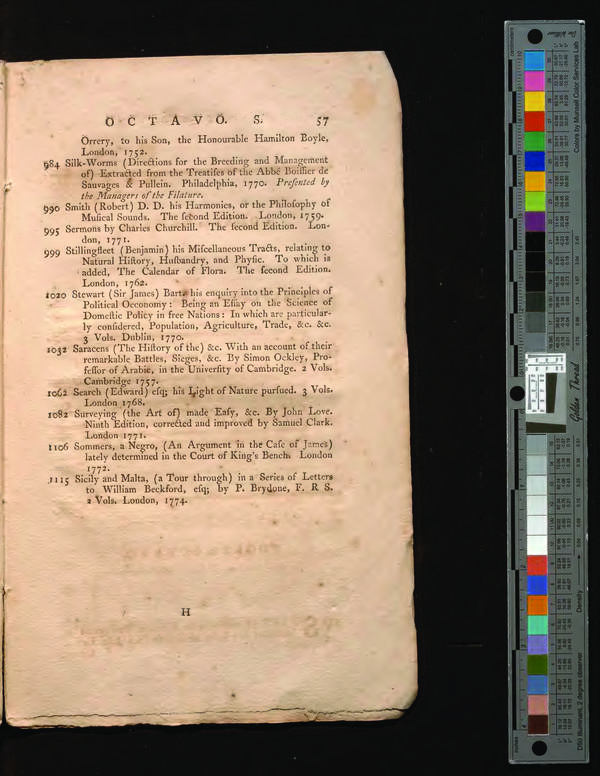 OCTAVO. S. 57
Orrery, to his Son, the Honourable Hamilton Boyle,
London, 1752.
984 Silk-Worms (Directions for the Breeding and Management
of) Extracted from the Treatises of the Abbé Boissier de
Sauvages & Pullein. Philadelphia, 1770. Presented by
the Managers of the Filature.
990 Smith (Robert) D. D. his Harmonics, or the Philosophy of
Musical Sounds. The second Edition. London, 1759.
995 Sermons by Charles Churchill. The second Edition. Lon-
don, 1771.
999 Stillingfleet (Benjamin) his Miscellaneous Tracts, relating to
Natural History, Husbandry, and Physic. To which is
added, The Calendar of Flora. The second Edition.
London, 1762.
1020 Stewart (Sir James) Bart. his enquiry into the Principles of
Political Oeconomy: Being an Essay on the Science of
Domestic Policy in free Nations: In which are particular-
ly considered, Population, Agriculture, Trade, &c. &c.
3 Vols. Dublin, 1770.
1032 Saracens (The History of the) &c. With an account of their
remarkable Battles, Sieges, &c. By Simon Ockley, Pro-
fessor of Arabic, in the University of Cambridge. 2 Vols.
Cambridge 1757.
1062 Search (Edward) esq; his Light of Nature pursued. 3 Vols.
London 1768.
1082 Surveying (the Art of) made Easy, &c. By John Love.
Ninth Edition, corrected and improved by Samuel Clark.
London 1771.
1106 Sommers, a Negro, (An Argument in the Case of James)
lately determined in the Court of King's Bench. London
1772.
1115 Sicily and Malta, (a Tour through) in a Series of Letters
to William Beckford, esq; by P. Brydone, F. R S.
2 Vols. London, 1774.
H
Colors by Munsell Color Services Lab
Golden Thread
Density
D50 Illuminant, 2 degree observer
inches